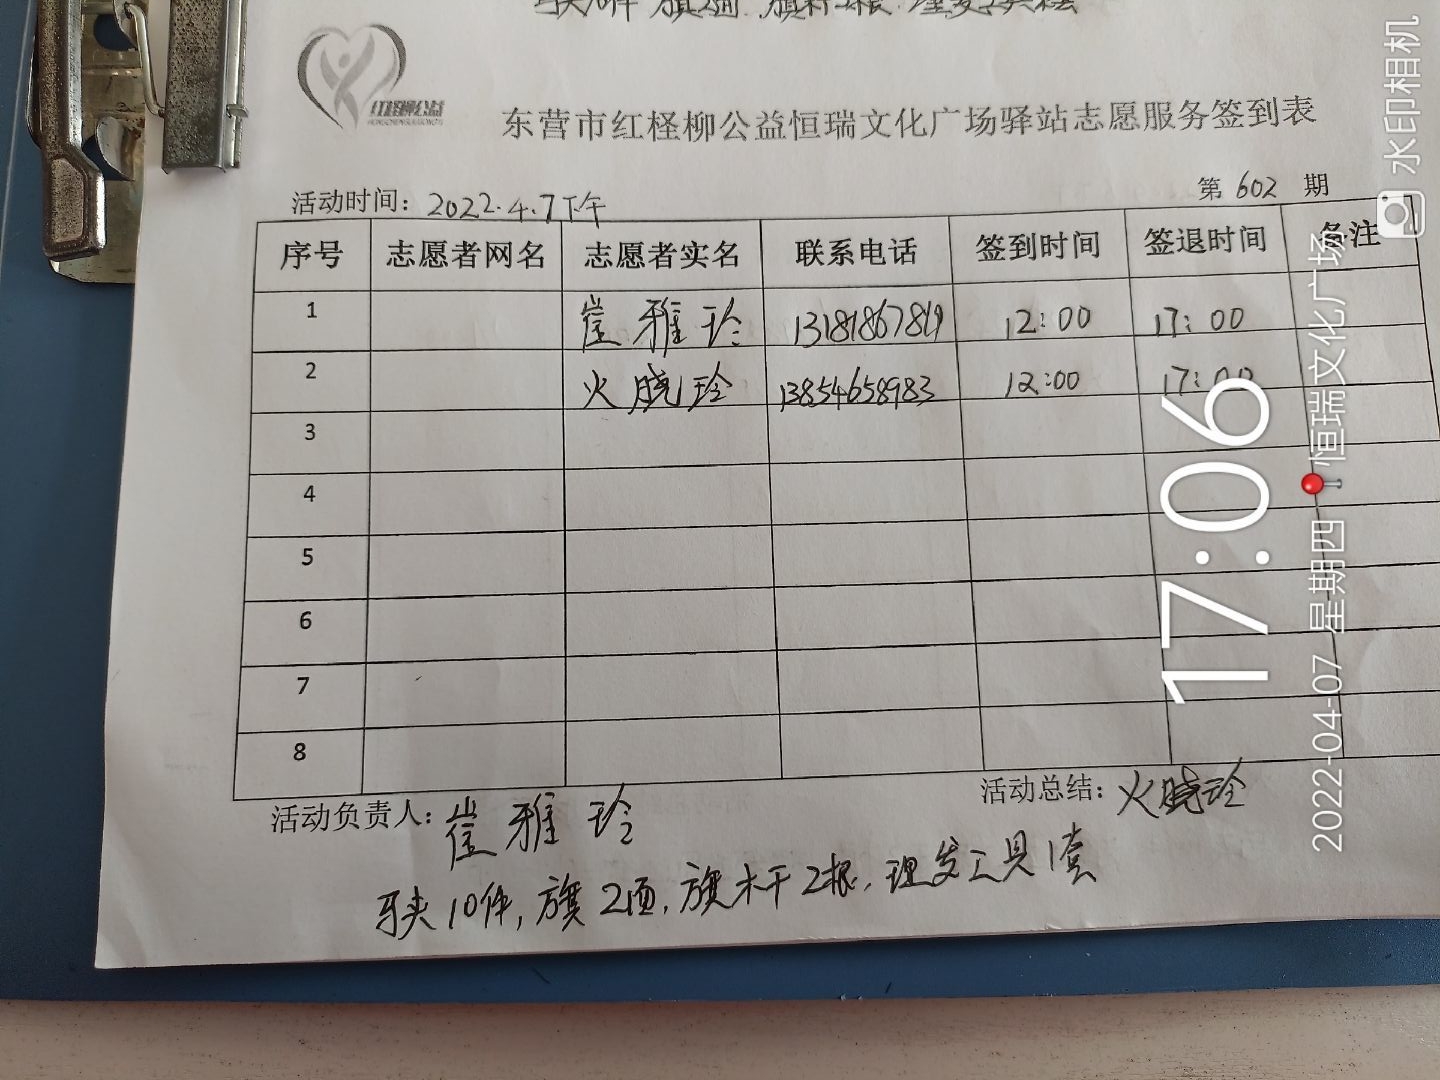 红柽柳公益
东营市红柽柳公益恒瑞文化广场驿站志愿服务签到表
活动时间：2022.4.7下午 第 602 期
序号 志愿者网名 志愿者实名 联系电话 签到时间 签退时间 备注
1 崔雅玲 13181867819 12:00 17:00
2 火晓玲 13854658983 12:00 17:00
3
4
5
6
7
8
活动负责人：崔雅玲 活动总结：火晓玲
马夹10件，旗2面，旗杆2根，理发工具1套
水印相机
17:06
2022-04-07 星期四 恒瑞文化广场